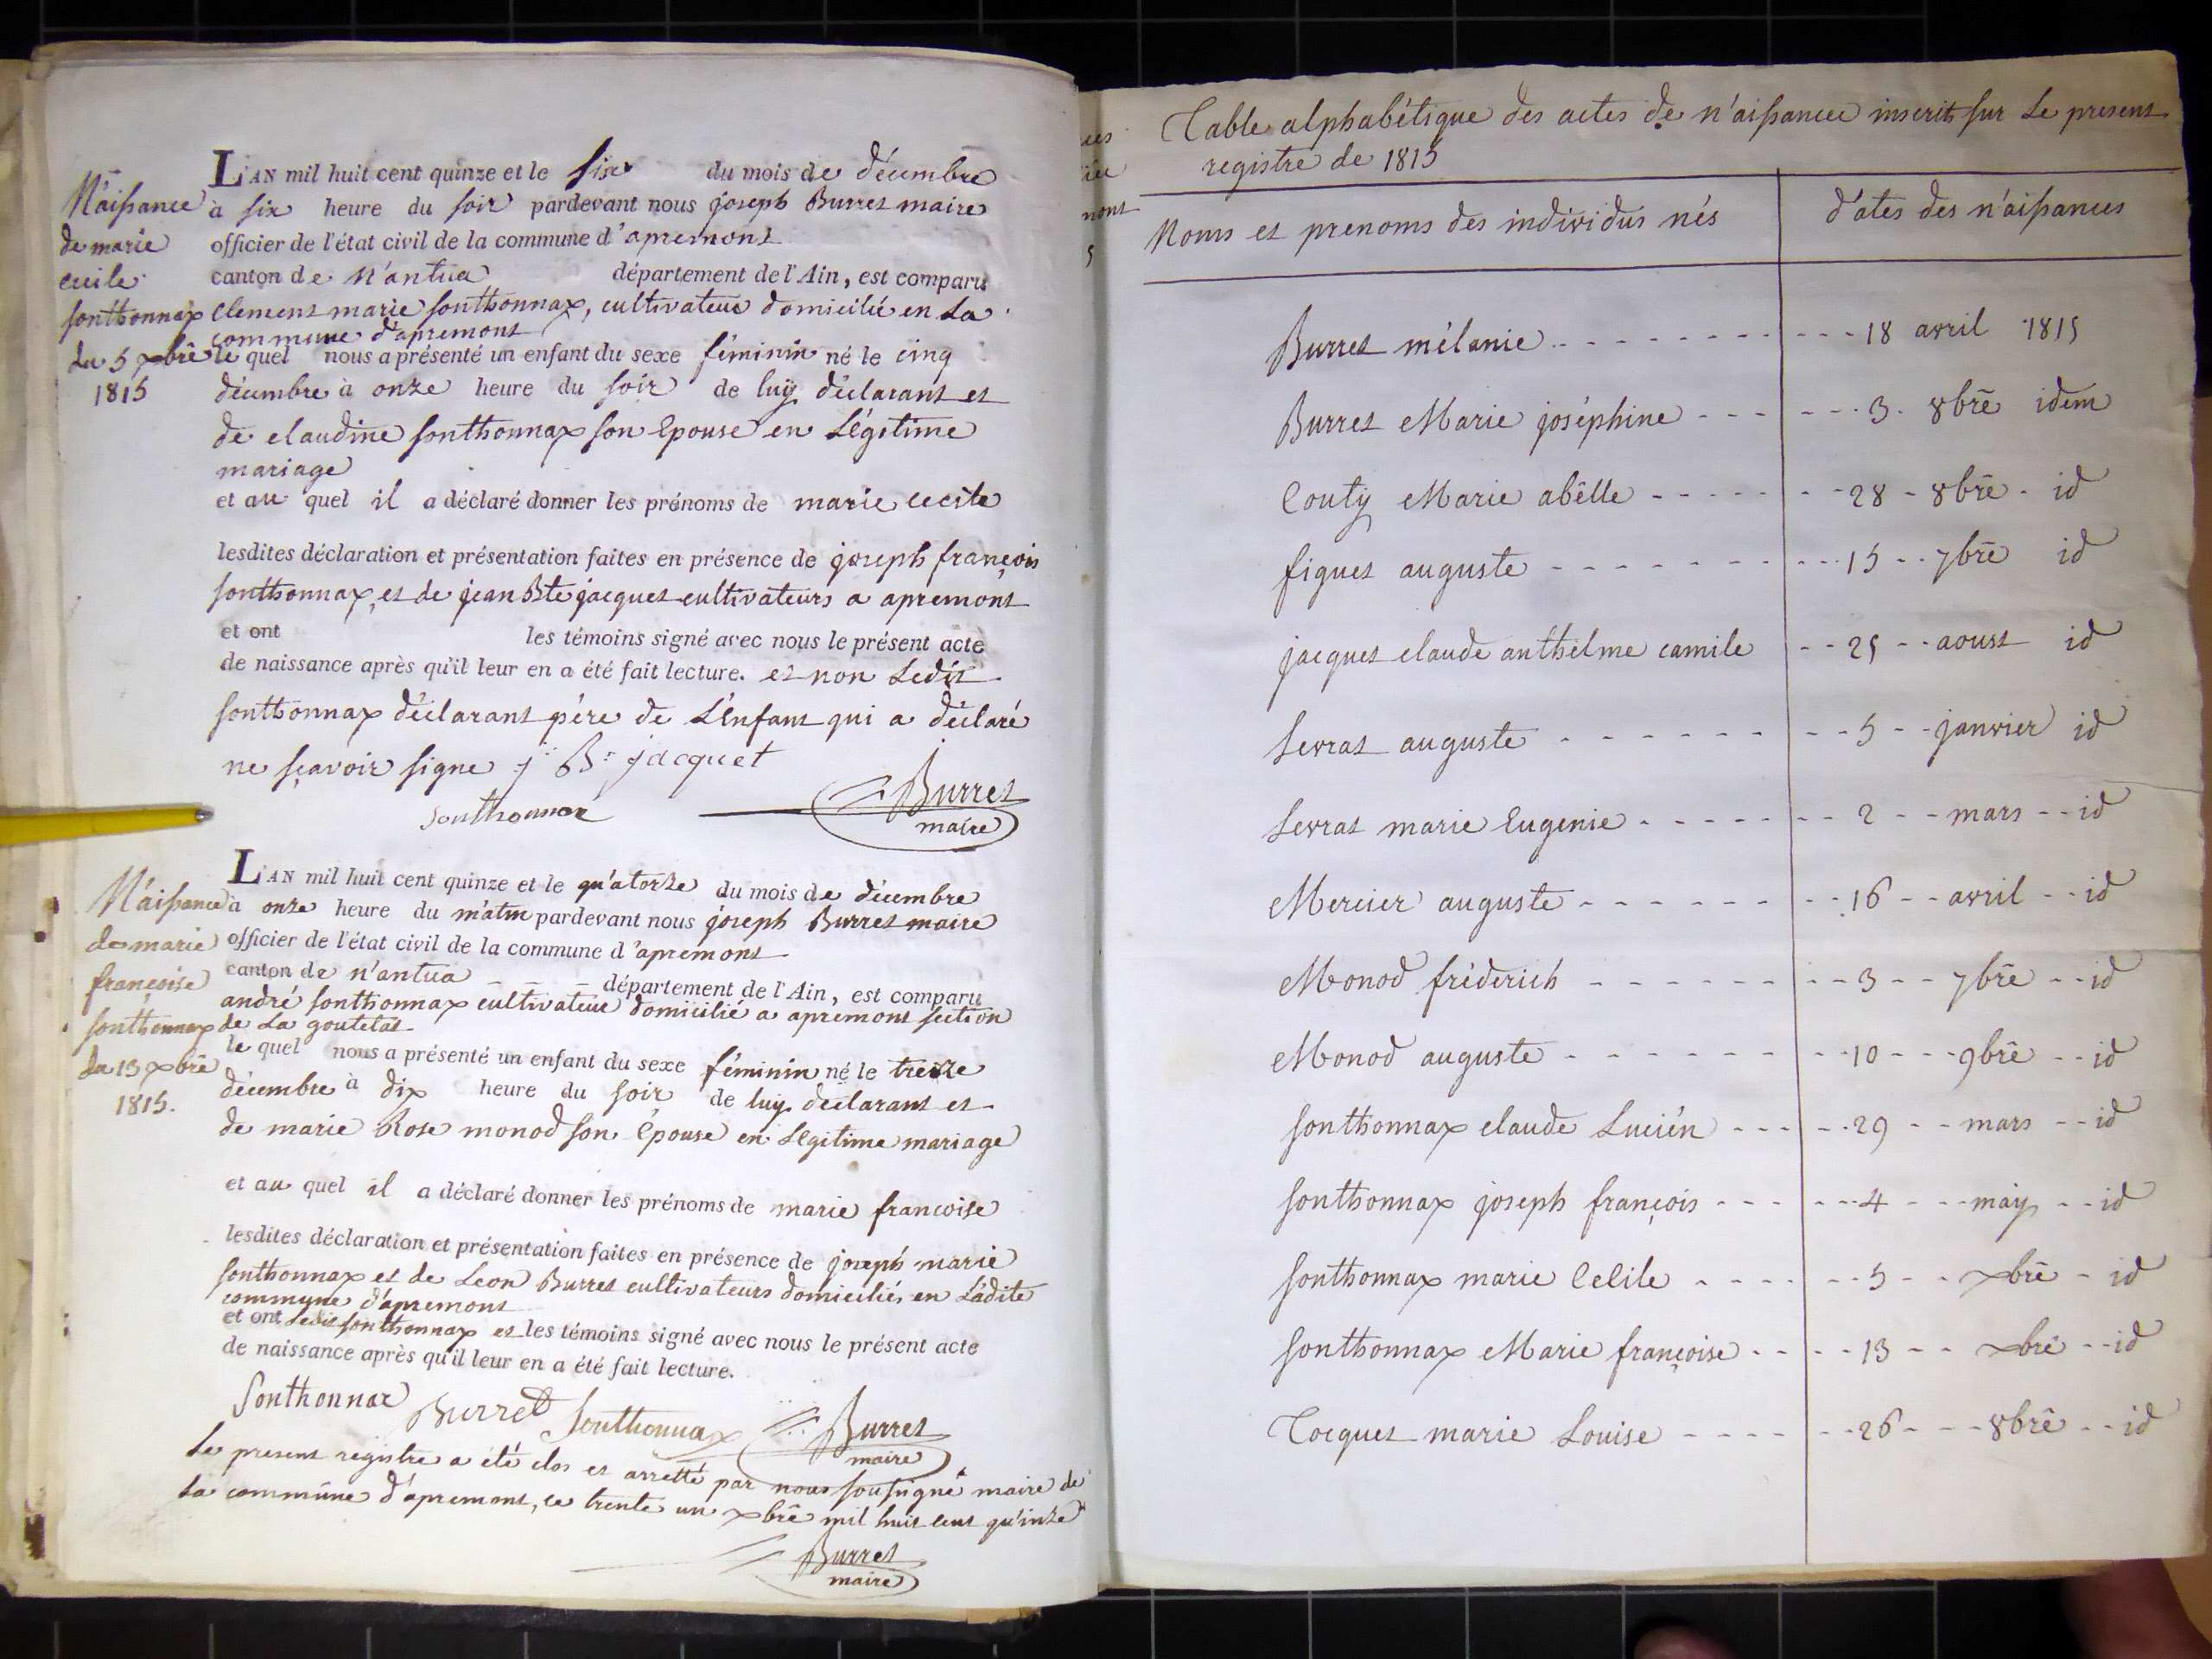 N'aissance
de marie
cecile
sonthonnax
du 5 xbre
1815
L'AN mil huit cent quinze et le six du mois de décembre
à six heure du soir pardevant nous joseph Burret maire
officier de l'état civil de la commune d'apremont
canton de N'antua département de l'Ain, est comparu
Clement marie sonthonnax, cultivateur domicilié en La
commune d'apremont
le quel nous a présenté un enfant du sexe féminin né le cinq
décembre à onze heure du soir de luy déclarant et
de claudine sonthonnax son Epouse en Légitime
mariage
et au quel il a déclaré donner les prénoms de marie cecile
lesdites déclaration et présentation faites en présence de joseph françois
sonthonnax, et de jean Bte jacquet cultivateurs a apremont
et ont les témoins signé avec nous le présent acte
de naissance après qu'il leur en a été fait lecture. et non Ledit
sonthonnax déclarant père de L'Enfant qui a déclaré
ne sçavoir signe j Bt jacquet
Sonthonnax
Burret
maire
N'aissance
de marie
françoise
sonthonnax
du 13 xbre
1815.
L'AN mil huit cent quinze et le qu'atorze du mois de décembre
à onze heure du m'atin pardevant nous joseph Burret maire
officier de l'état civil de la commune d'apremont
canton de n'antua département de l'Ain, est comparu
andré sonthonnax cultivateur domicilié a apremont section
de La goutelat
le quel nous a présenté un enfant du sexe féminin né le treize
décembre à dix heure du soir de luy déclarant et
de marie Rose monod son Epouse en Légitime mariage
et au quel il a déclaré donner les prénoms de marie francoise
lesdites déclaration et présentation faites en présence de joseph marie
sonthonnax et de Leon Burret cultivateurs domiciliés en Ladite
commune d'apremont
et ont Ledit sonthonnax et les témoins signé avec nous le présent acte
de naissance après qu'il leur en a été fait lecture.
Sonthonnax Burret Sonthonnax Burret
maire
Le present registre a été clos et arretté par nous soussigné maire de
La commune d'apremont, ce trente un xbre mil huit cent qu'inze
Burret
maire
nont
5
Table alphabétique des actes de n'aissance inscrit sur Le present
registre de 1815
Noms et prenoms des individus nés d'ates des n'aissances
Burret mélanie 18 avril 1815
Burret Marie joséphine 3. 8bre idem
Couty Marie abélle 28 8bre id
figuet auguste 15 7bre id
jacquet claude anthelme camile 25 aoust id
Serrat auguste 5 janvier id
Serrat marie Eugenie 2 mars id
Mercier auguste 16 avril id
Monod fréderich 3 7bre id
Monod auguste 10 9bre id
sonthonnax claude Lucién 29 mars id
sonthonnax joseph françois 4 may id
sonthonnax marie Cecile 5 xbre id
sonthonnax Marie françoise 13 xbre id
Tocquet marie Louise 26 8bre id